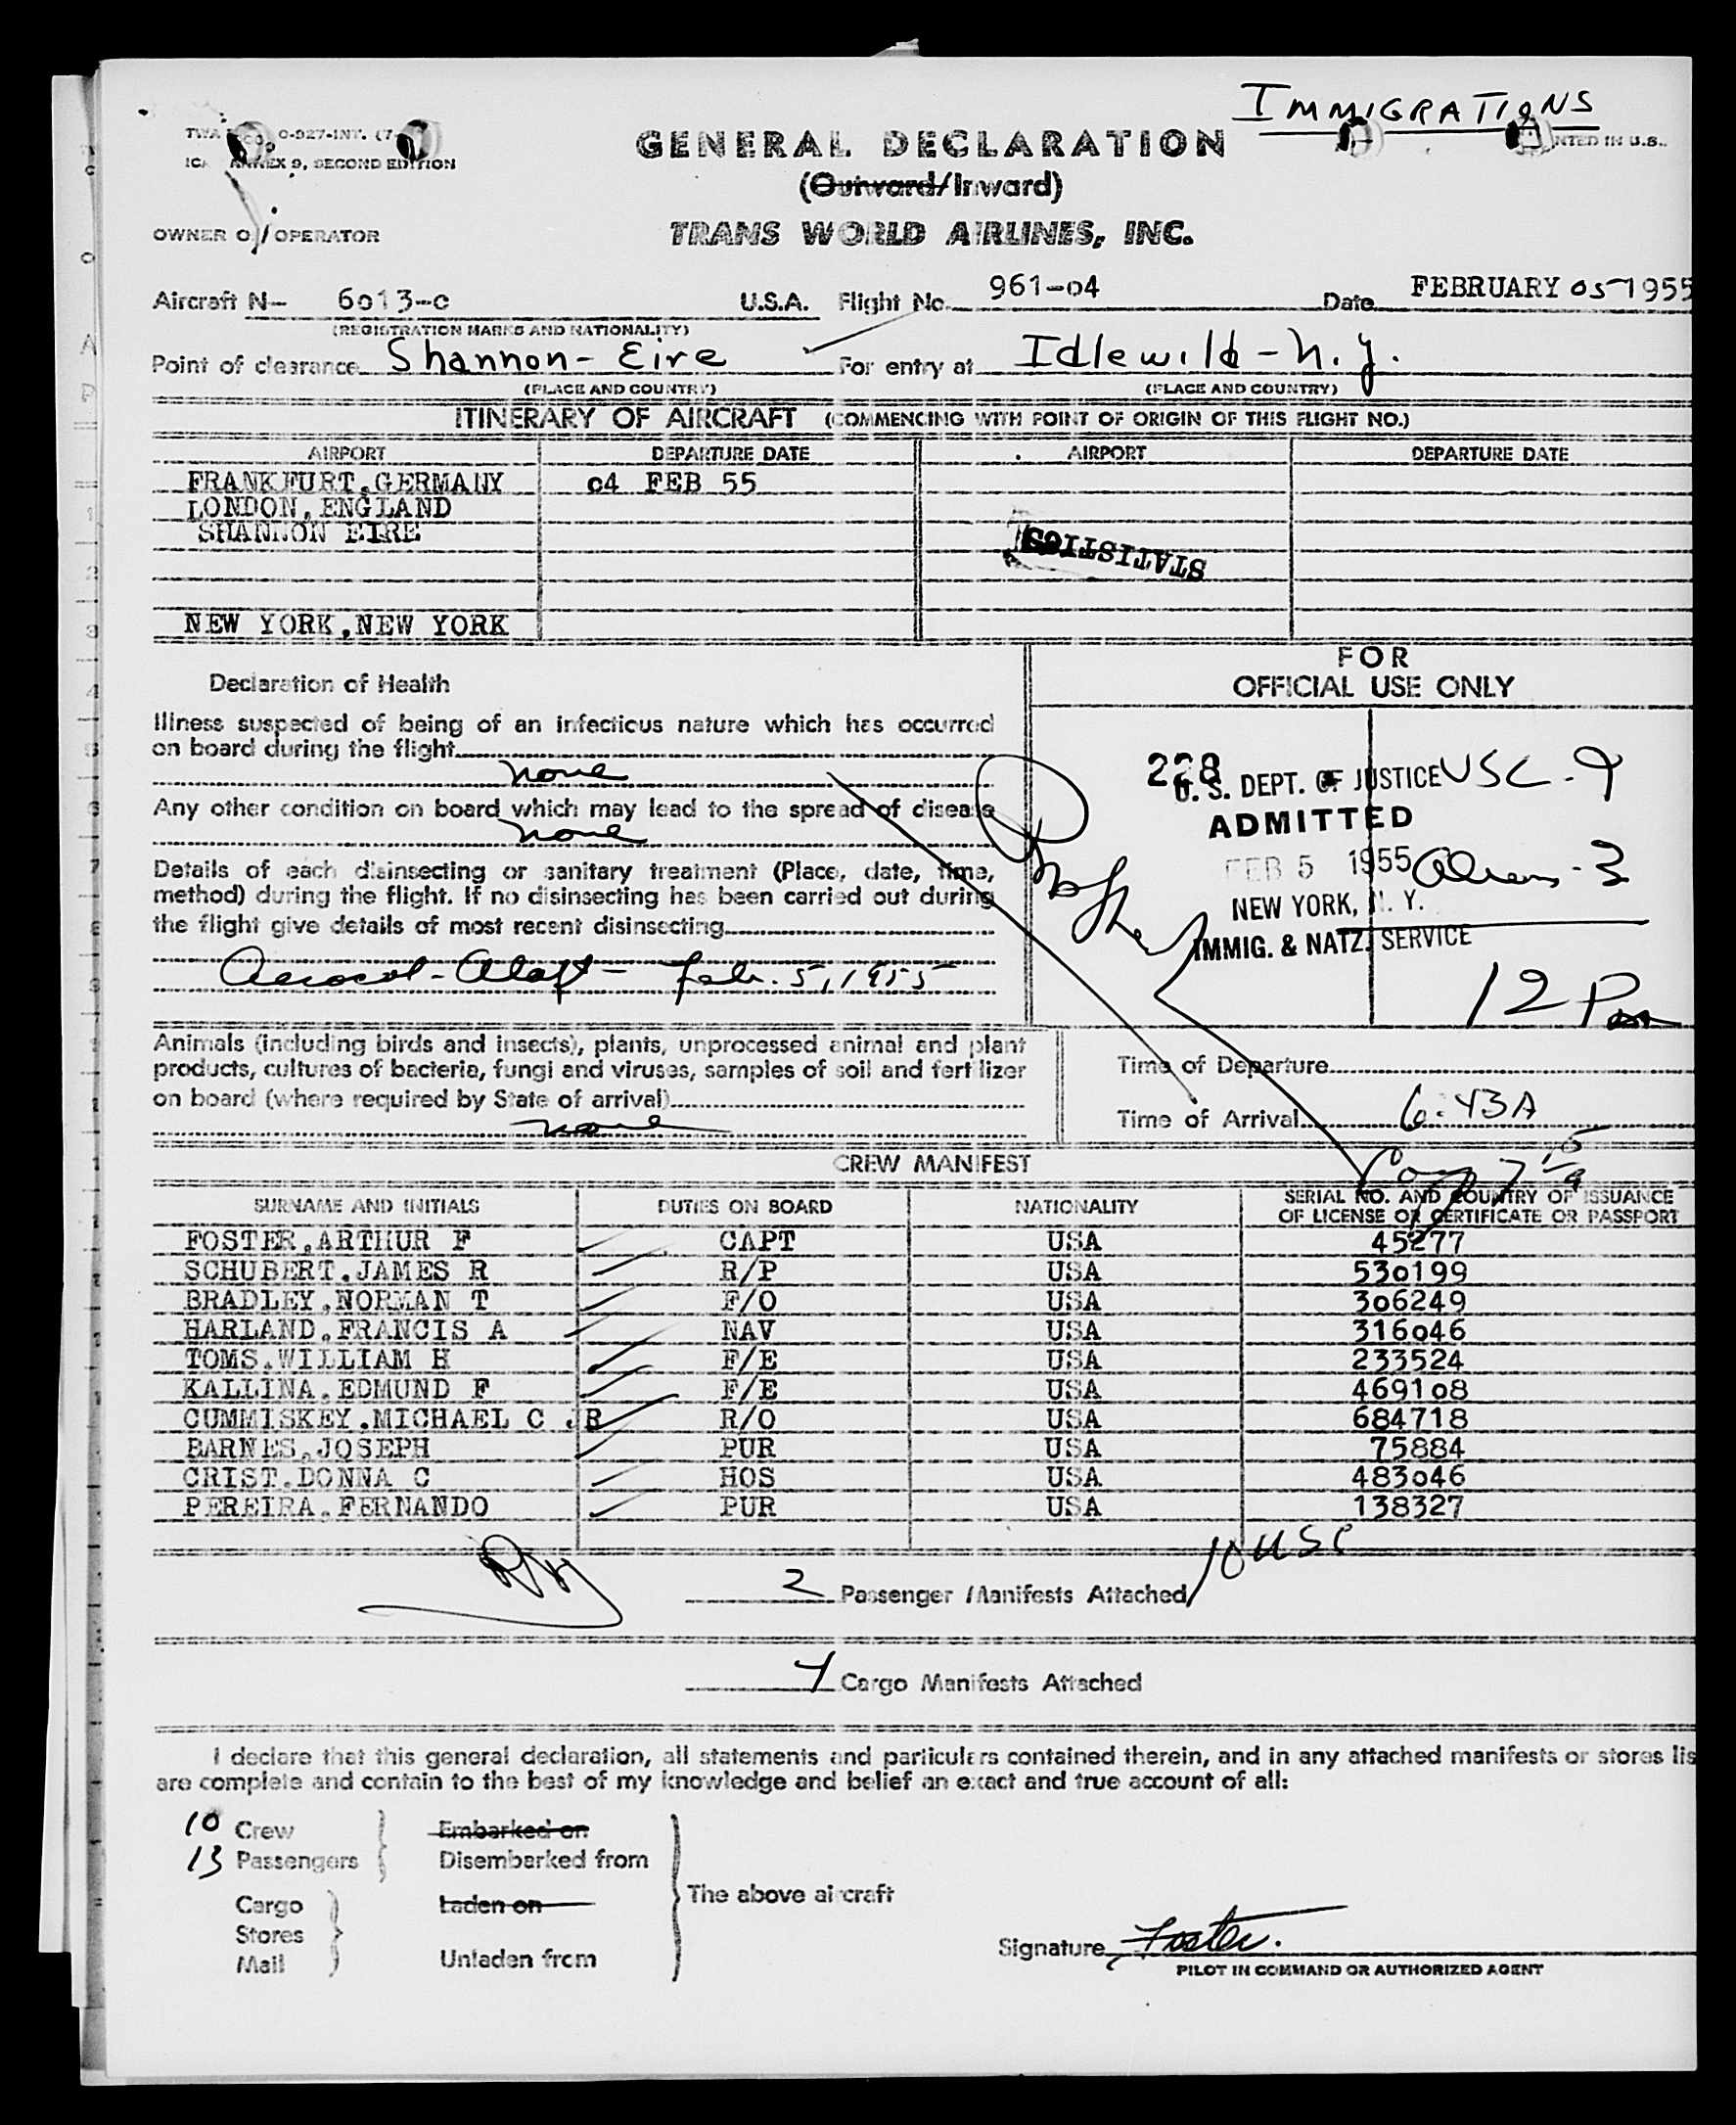 IMMIGRATIONS
O-927-INT. (7-
ANNEX 9, SECOND EDITION
NTED IN U.S.
GENERAL DECLARATION
(Outward/Inward)
OWNER O / OPERATOR
TRANS WORLD AIRLINES, INC.
Aircraft N- 6013-c U.S.A. Flight No. 961-04 Date FEBRUARY 05 1955
(REGISTRATION MARKS AND NATIONALITY)
Point of clearance Shannon - Eire For entry at Idlewild - N.Y.
(PLACE AND COUNTRY) (PLACE AND COUNTRY)
ITINERARY OF AIRCRAFT (COMMENCING WITH POINT OF ORIGIN OF THIS FLIGHT NO.)
AIRPORT DEPARTURE DATE AIRPORT DEPARTURE DATE
FRANKFURT,GERMANY 04 FEB 55
LONDON, ENGLAND
SHANNON EIRE
STATISTICS
NEW YORK,NEW YORK
FOR
OFFICIAL USE ONLY
Declaration of Health
Illness suspected of being of an infectious nature which has occurred
on board during the flight
none
Any other condition on board which may lead to the spread of disease
none
Details of each disinsecting or sanitary treatment (Place, date, time,
method) during the flight. If no disinsecting has been carried out during
the flight give details of most recent disinsecting
Aerosol - Aloft - Feb. 5, 1955
228
U. S. DEPT. OF JUSTICE USC - 9
ADMITTED
FEB 5 1955 Aliens - 3
NEW YORK, N. Y.
IMMIG. & NATZ. SERVICE
12 Pax
Animals (including birds and insects), plants, unprocessed animal and plant
products, cultures of bacteria, fungi and viruses, samples of soil and fertilizer
on board (where required by State of arrival)
none
Time of Departure
Time of Arrival 6:43A
CREW MANIFEST
SURNAME AND INITIALS DUTIES ON BOARD NATIONALITY SERIAL NO. AND COUNTRY OF ISSUANCE
OF LICENSE OR CERTIFICATE OR PASSPORT
FOSTER,ARTHUR F CAPT USA 45277
SCHUBERT,JAMES R R/P USA 530199
BRADLEY,NORMAN T F/O USA 306249
HARLAND,FRANCIS A NAV USA 316046
TOMS,WILLIAM H F/E USA 233524
KALLINA,EDMUND F F/E USA 469108
CUMMISKEY,MICHAEL C JR R/O USA 684718
BARNES,JOSEPH PUR USA 75884
CRIST,DONNA C HOS USA 483046
PEREIRA,FERNANDO PUR USA 138327
10 USC
2 Passenger Manifests Attached
Cargo Manifests Attached
I declare that this general declaration, all statements and particulars contained therein, and in any attached manifests or stores lis
are complete and contain to the best of my knowledge and belief an exact and true account of all:
10 Crew Embarked on
13 Passengers Disembarked from
The above aircraft
Cargo Laden on
Stores
Mail Unladen from
Signature Foster.
PILOT IN COMMAND OR AUTHORIZED AGENT